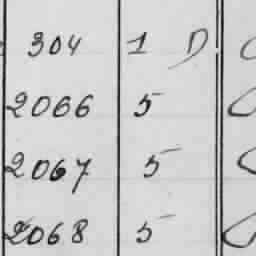 304 1 D
2066 5
2067 5
2068 5